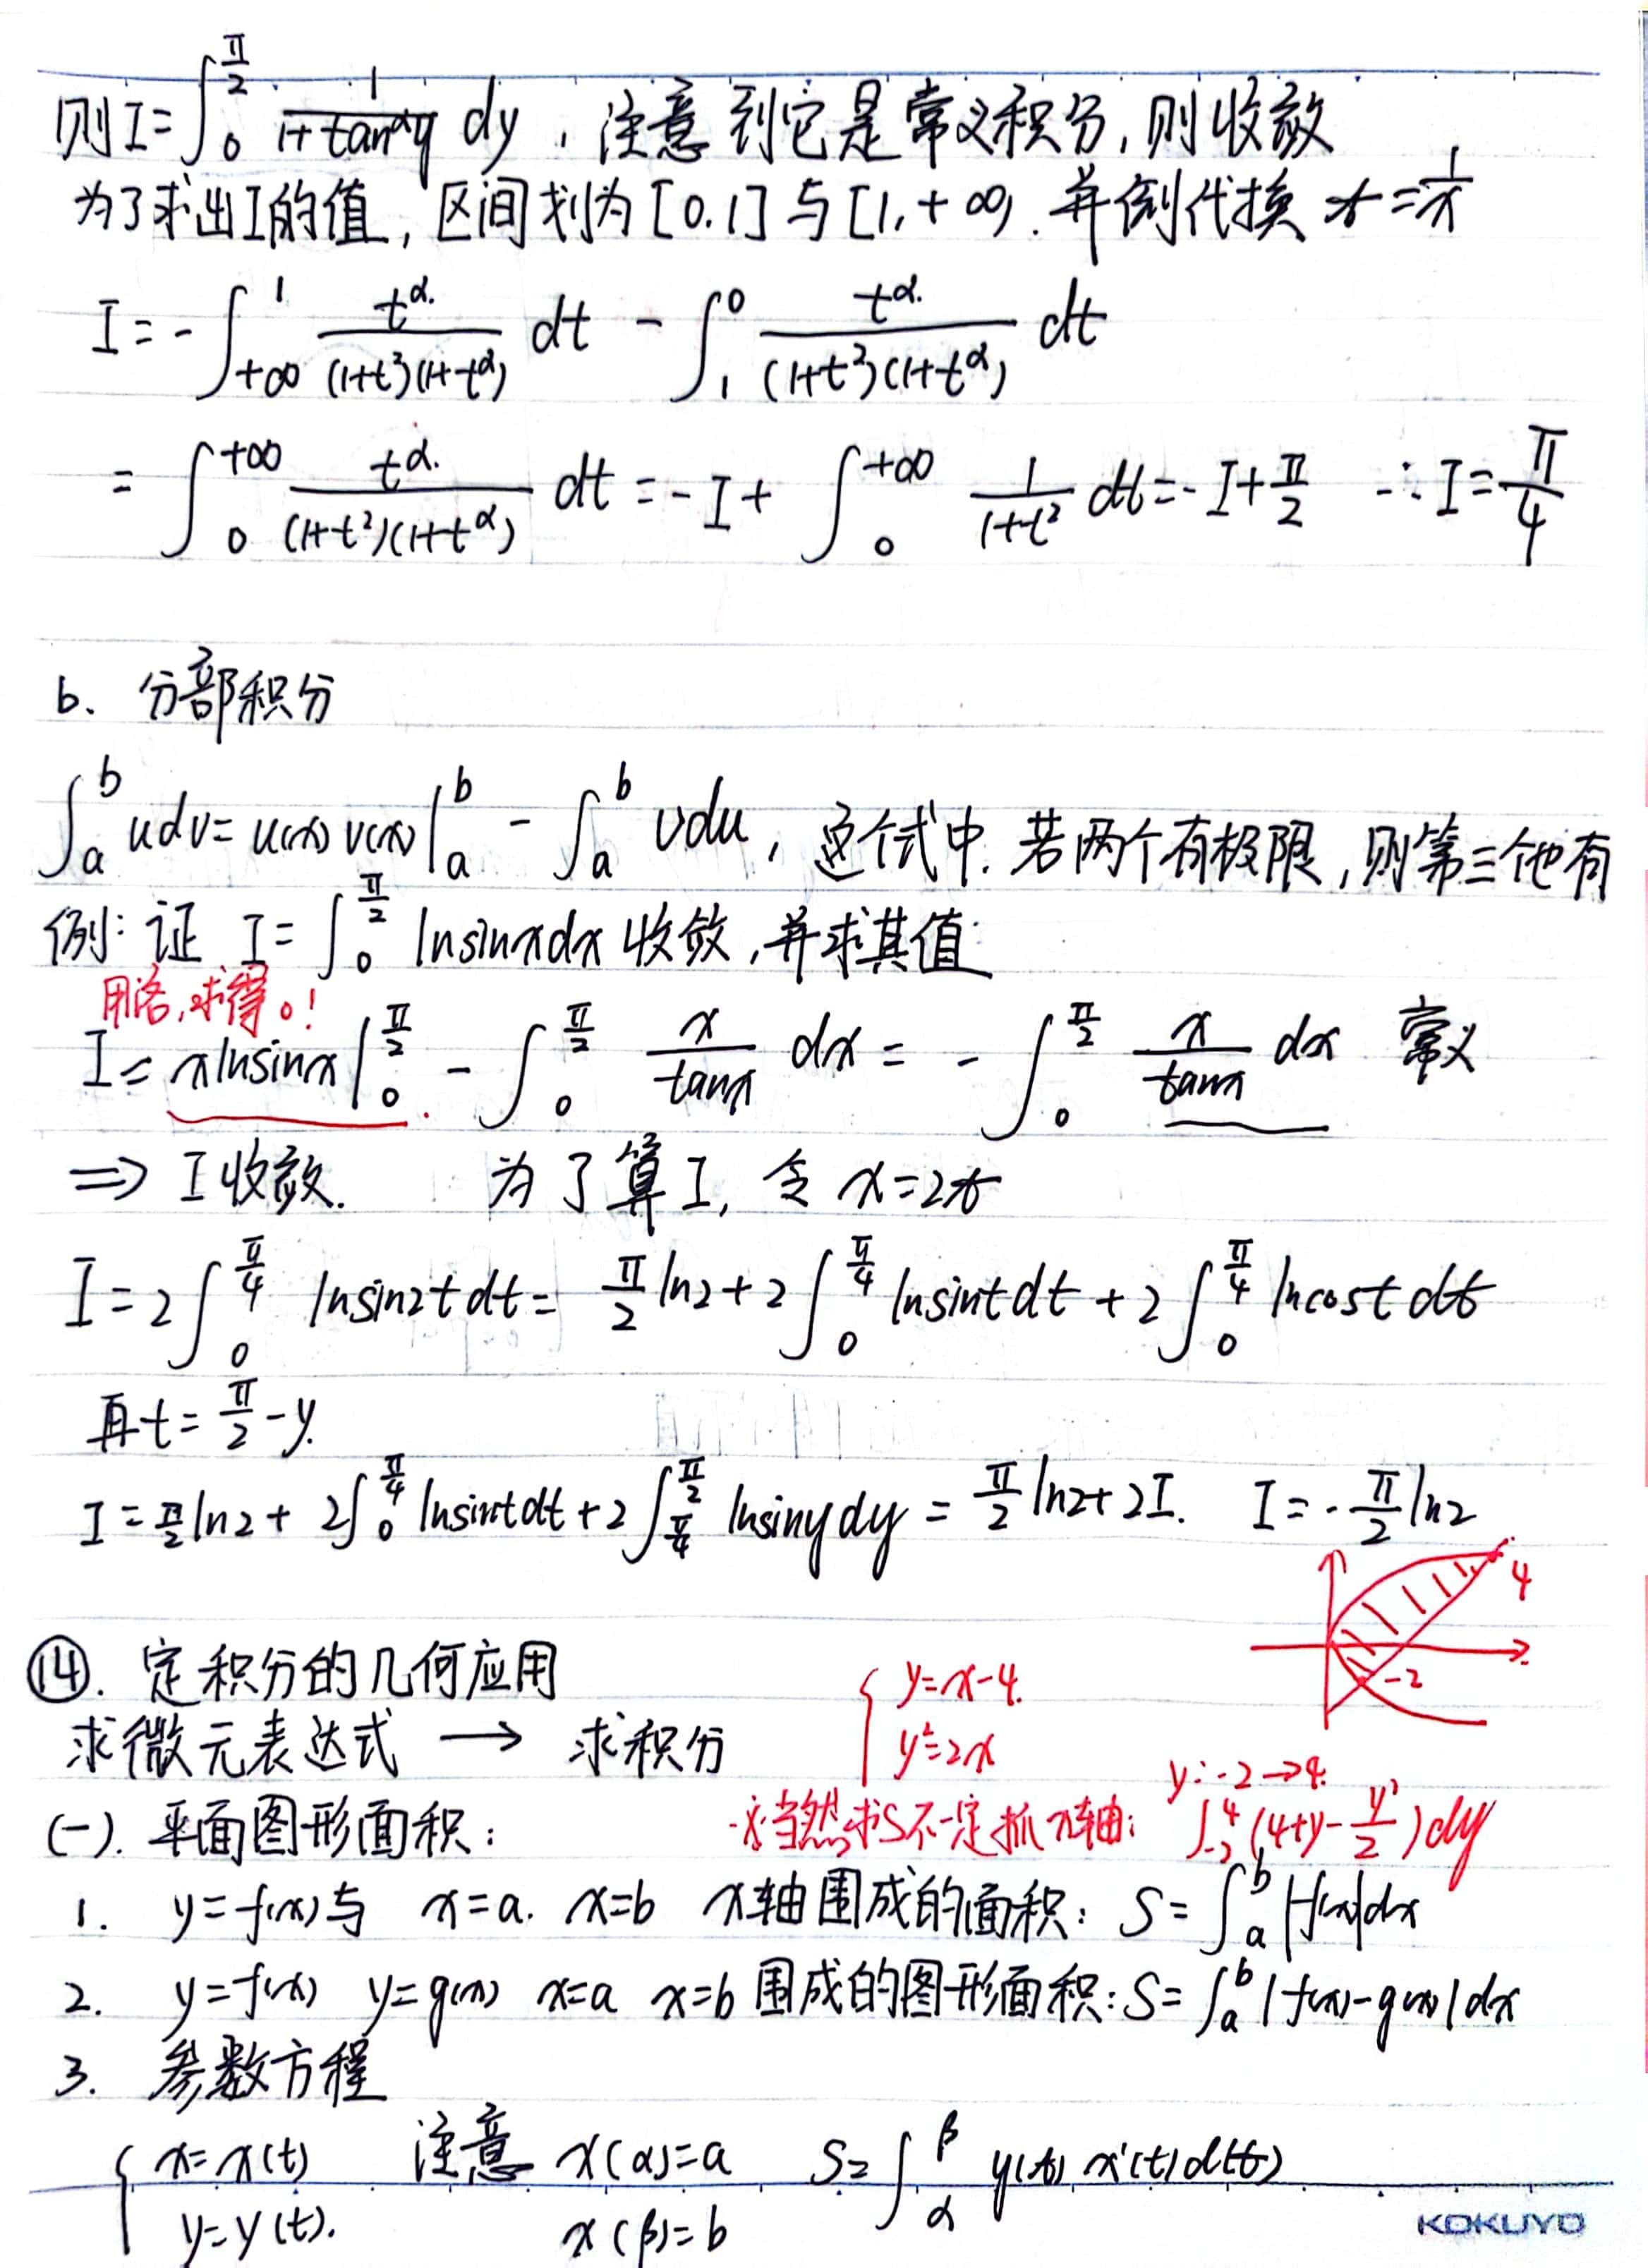 则I=∫₀^{π/2} 1/(1+tan^α y) dy，注意到它是常义积分,则收敛
为了求出I的值，区间划为[0,1]与[1,+∞)．并倒代换 t=1/x
I=-∫_{+∞}^{1} t^α/((1+t²)(1+t^α)) dt - ∫_1^0 t^α/((1+t²)(1+t^α)) dt
=∫_0^{+∞} t^α/((1+t²)(1+t^α)) dt=-I+∫_0^{+∞} 1/(1+t²) dt=-I+π/2 ∴I=π/4
b. 分部积分
∫_a^b udv=u(x)v(x)|_a^b-∫_a^b vdu，这个式中.若两个有极限,则第三个也有
例: 证 I=∫_0^{π/2} lnsinxdx 收敛,并求其值
用洛,求得0!
I=xlnsinx|_0^{π/2}-∫_0^{π/2} x/tanx dx=-∫_0^{π/2} x/tanx dx 常义
⇒ I收敛. 为了算I, 令 x=2t
I=2∫_0^{π/4} lnsin2tdt=π/2 ln2+2∫_0^{π/4} lnsintdt+2∫_0^{π/4} lncostdt
再t=π/2-y.
I=π/2 ln2+2∫_0^{π/4} lnsintdt+2∫_{π/4}^{π/2} lnsinydy=π/2 ln2+2I. I=-π/2 ln2
4
-2
⑭. 定积分的几何应用
{y=x-4.
求微元表达式 → 求积分
y²=2x
y:-2→4.
(一). 平面图形面积：
当然,求S不一定抓x轴: ∫_{-2}^4(4+y-y²/2)dy
1. y=f(x)与 x=a. x=b x轴围成的面积：S=∫_a^b|f(x)|dx
2. y=f(x) y=g(x) x=a x=b 围成的图形面积:S=∫_a^b|f(x)-g(x)|dx
3. 参数方程
{x=x(t) 注意 x(α)=a S=∫_α^β y(t)x'(t)d(t)
y=y(t). x(β)=b
KOKUYO